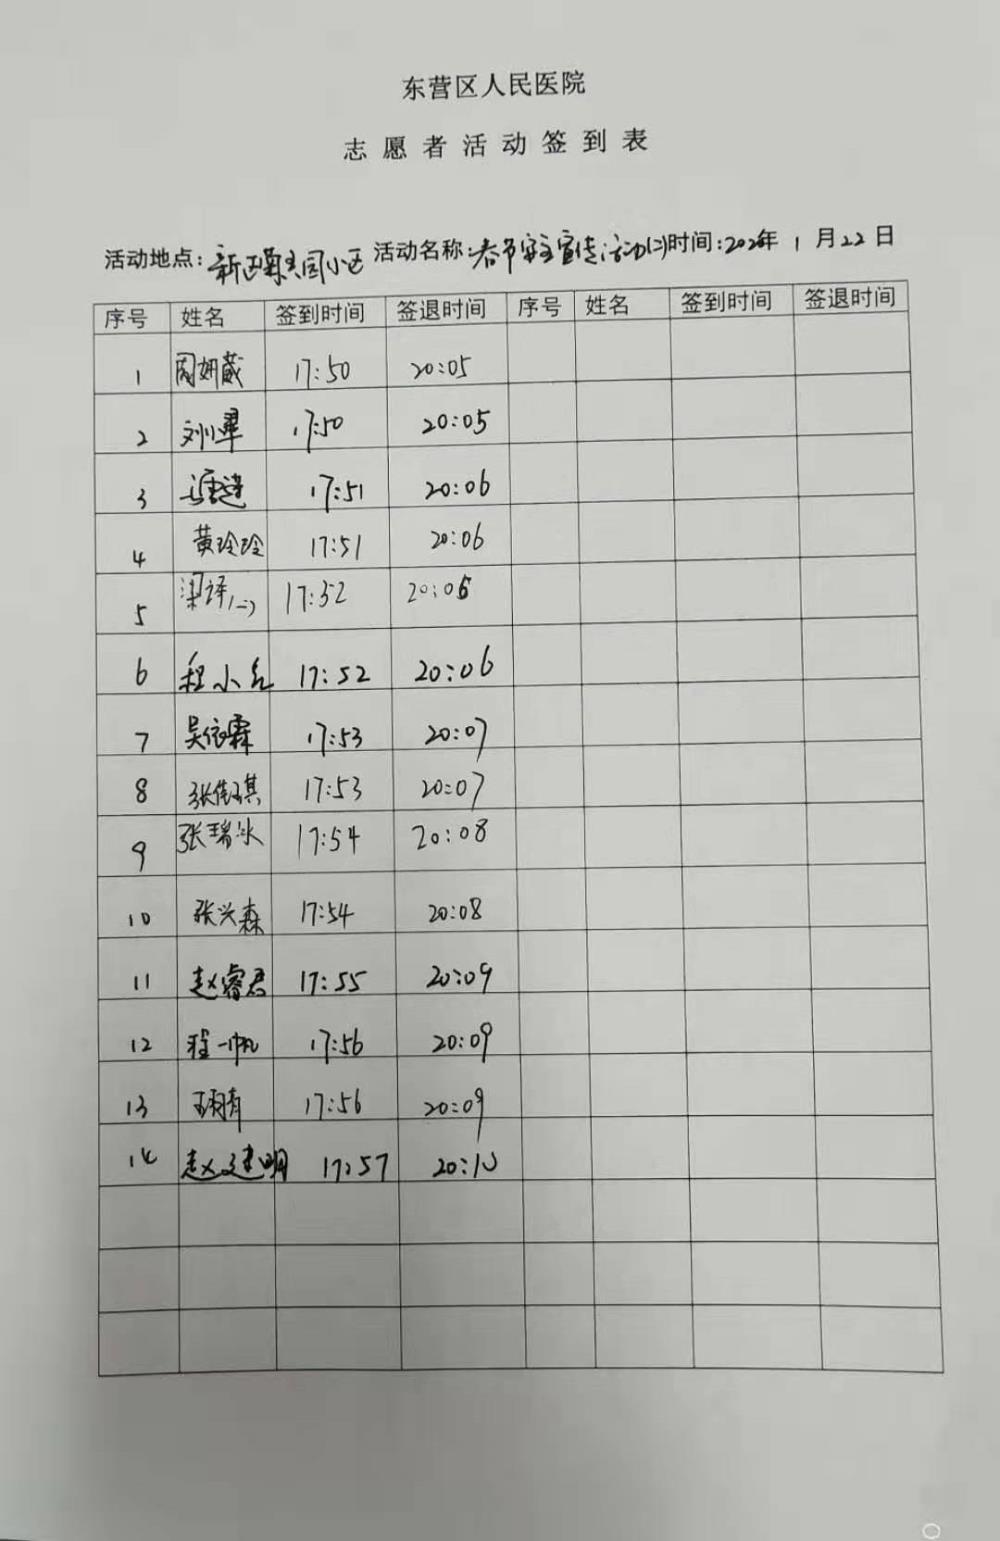 东营区人民医院
志愿者活动签到表
活动地点: 小区 活动名称: 春节 宣传活动(二) 时间: 年 1 月 22 日
序号 姓名 签到时间 签退时间 序号 姓名 签到时间 签退时间
1 周妍葳 17:50 20:05
2 刘小翠 17:50 20:05
3 17:51 20:06
4 黄玲玲 17:51 20:06
5 梁译(二) 17:52 20:06
6 程小红 17:52 20:06
7 吴依霖 17:53 20:07
8 张 琪 17:53 20:07
9 张瑞冰 17:54 20:08
10 张兴森 17:54 20:08
11 赵睿君 17:55 20:09
12 程一帆 17:56 20:09
13 王雨青 17:56 20:09
14 赵建明 17:57 20:10